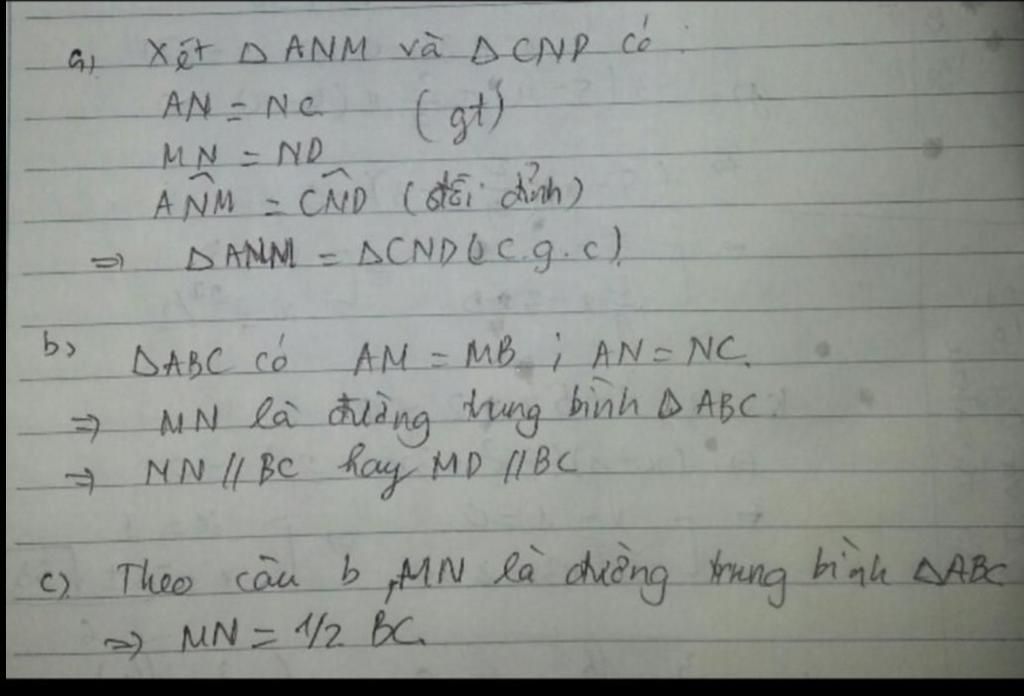 a, Xét Δ ANM và Δ CND có :
AN = NC (gt)
MN = ND
AN̂M = CN̂D (đối đỉnh)
=> Δ ANM = Δ CND (c.g.c).
b, Δ ABC có AM = MB ; AN = NC.
=> MN là đường trung bình Δ ABC.
=> MN // BC hay MD // BC
c) Theo câu b, MN là đường trung bình Δ ABC
=> MN = 1/2 BC.